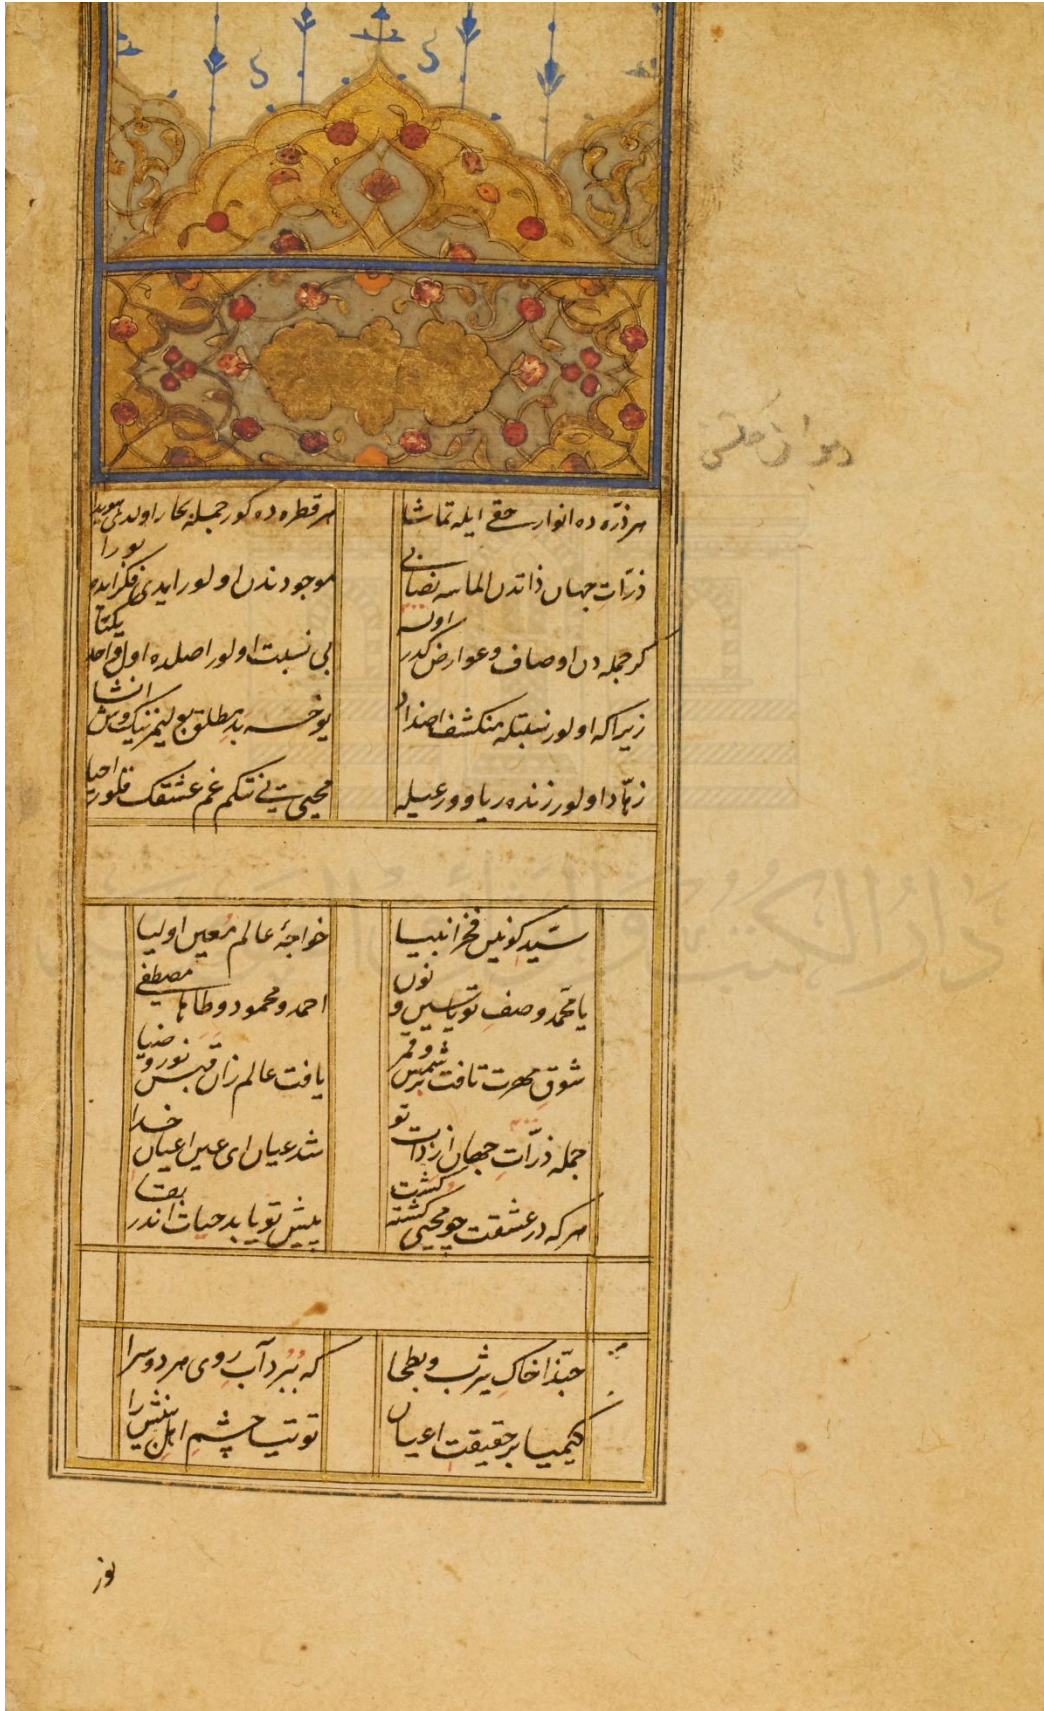 دیوان
هر ذرّه ده انوار حقی ایله تماشا
هر قطره ده کور جمله بحار اولدی هویدا
ذرّات جهان ذاتدن الماسه نصابی
موجود ندن اولور ایدی فکر ایده بورا
کر جمله دن اوصاف و عوارض کدر اولسه
بی نسبت اولور اصلده اول واحد یکتا
زیرا که اولور نسبتله منکشف اضداد
یوخسه بد مطلق بولیمز نیک وش انشا
زهّاد اولور زنده ریا وورعیله
محیی یی نتکم غم عشقک قلور احیا
سیّدِ کونین فخر انبیا
خواجۀ عالم مُعین اولیا
یا محمّد وصفِ تو یاسین و نون
احمد و محمود و طاها مصطفی
شوقِ مهرت تافت بر شمس و قمر
یافت عالم زان قبس نور و ضیا
جمله ذرّاتِ جهان از ذات تو
شد عیان ای عین اعیان خدا
هر که در عشقت چو محیی کشته کشت
پیش تو یابد حیات اندر بقا
حبّذا خاکِ یثرب و بطحا
که بُبُرد آبِ روی هر دو سرا
کیمیا بر حقیقتِ اعیان
توتیا چشمِ اهل بینش را
نور
دار الكتب